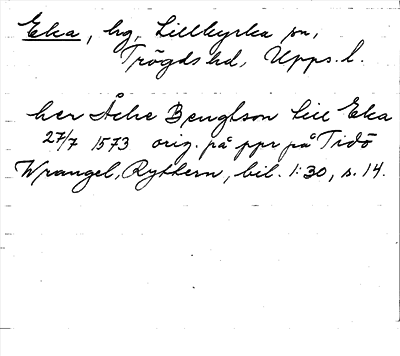 Eka, hg, Lillkyrka sn,
Trögds hd, Upps. l.
her Åke Bengtson till Eka
27/7 1573 orig. på ppr på Tidö
Wrangel, Rythern, bil. 1:30, s. 14.